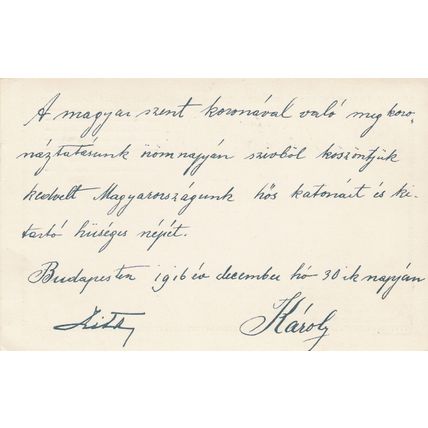 A magyar szent koronával való megkoro-
náztatásunk örömnapján szivből köszöntjük
kedvelt Magyarországunk hős katonáit és ki-
tartó hűséges népét.
Budapesten 1916 év december hó 30ik napján
Zita Károly